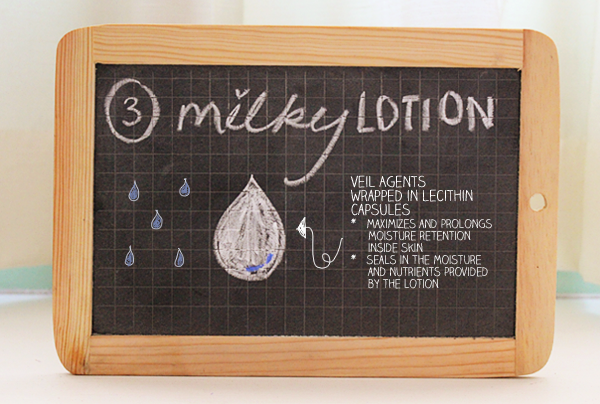 3 milky LOTION
VEIL AGENTS
WRAPPED IN LECITHIN
CAPSULES
* MAXIMIZES AND PROLONGS
MOISTURE RETENTION
INSIDE SKIN
* SEALS IN THE MOISTURE
AND NUTRIENTS PROVIDED
BY THE LOTION